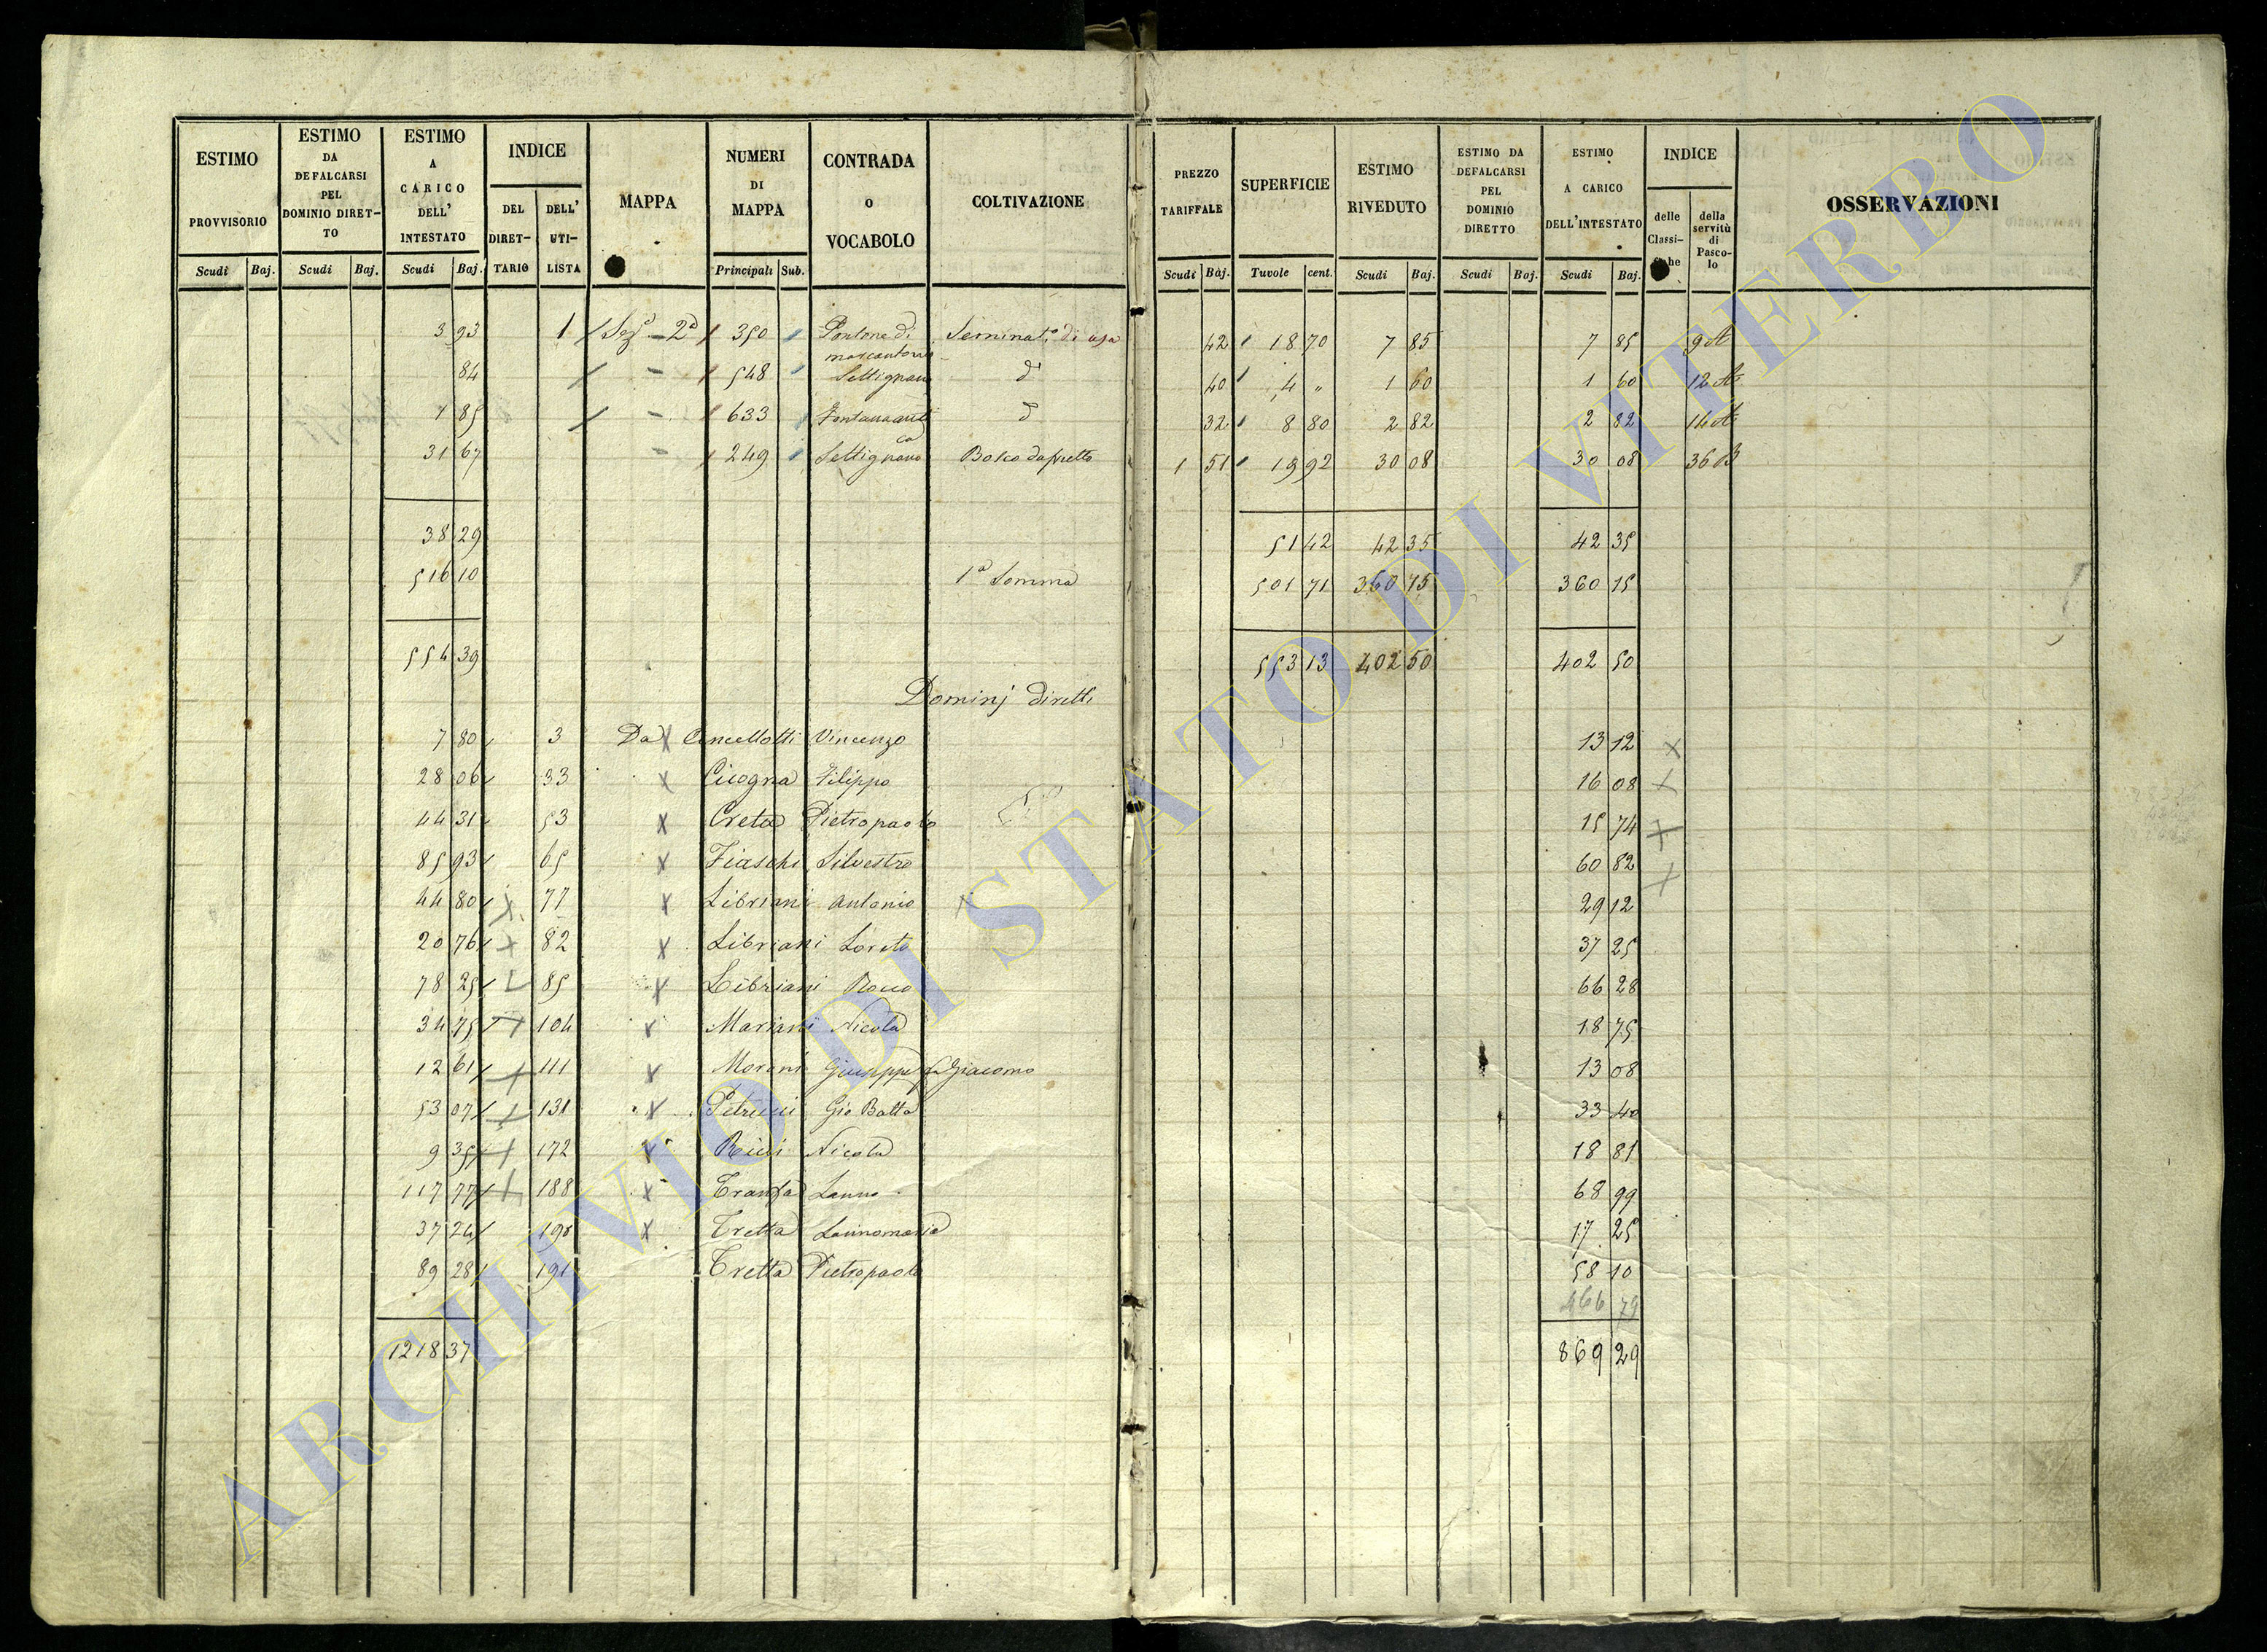 ESTIMO PROVVISORIO
Scudi Baj.
ESTIMO DA DEFALCARSI PEL DOMINIO DIRET-TO
Scudi Baj.
ESTIMO A CARICO DELL' INTESTATO
Scudi Baj.
INDICE
DEL DIRET-TARIO
DELL' UTI-LISTA
MAPPA
NUMERI DI MAPPA
Principali Sub.
CONTRADA O VOCABOLO
COLTIVAZIONE
PREZZO TARIFFALE
Scudi Baj.
SUPERFICIE
Tavole cent.
ESTIMO RIVEDUTO
Scudi Baj.
ESTIMO DA DEFALCARSI PEL DOMINIO DIRETTO
Scudi Baj.
ESTIMO A CARICO DELL'INTESTATO
Scudi Baj.
INDICE
delle Classi-che
della servitù di Pasco-lo
OSSERVAZIONI
3 93 1 Sez.e 2a 350 Pantone di marcantonio Seminat.o di usa 42 18 70 7 85 7 85 9 A
84 - 548 Settignano d.o 40 4 " 1 60 1 60 12 A
1 85 - 633 d.o 32 8 80 2 82 2 82 14 A
31 67 - 249 Settignano Bosco da frutto 1 51 19 92 30 08 30 08 36 B
38 29 51 42 42 35 42 35
516 10 1a Somma 501 71 360 15 360 15
554 39 553 13 402 50 402 50
Dominj diretti
7 80 3 Da X Ancellotti Vincenzo 13 12 X
28 06 33 X Cicogna Filippo 16 08 X
44 31 53 X Creta Pietropaolo 15 74 X
85 93 65 X Fiaschi Silvestro 60 82 X
44 80 X 77 X Libriani Antonio 29 12
20 76 X 82 X Libriani Loreto 37 25
78 25 85 X Libriani Rocco 66 28
34 75 104 X Mariani Nicola 18 75
12 61 X 111 X Moroni Giuseppe fu Giacomo 13 08
53 07 131 X Petrucci Gio Batta 33 40
9 35 X 172 X Ricci Nicola 18 81
117 77 X 188 X Tranfa Sanno 68 99
37 24 190 X Tretta Sannomaria 17 25
89 28 191 Tretta Pietropaolo 58 10
466 79
1218 37 869 29
ARCHIVIO DI STATO DI VITERBO